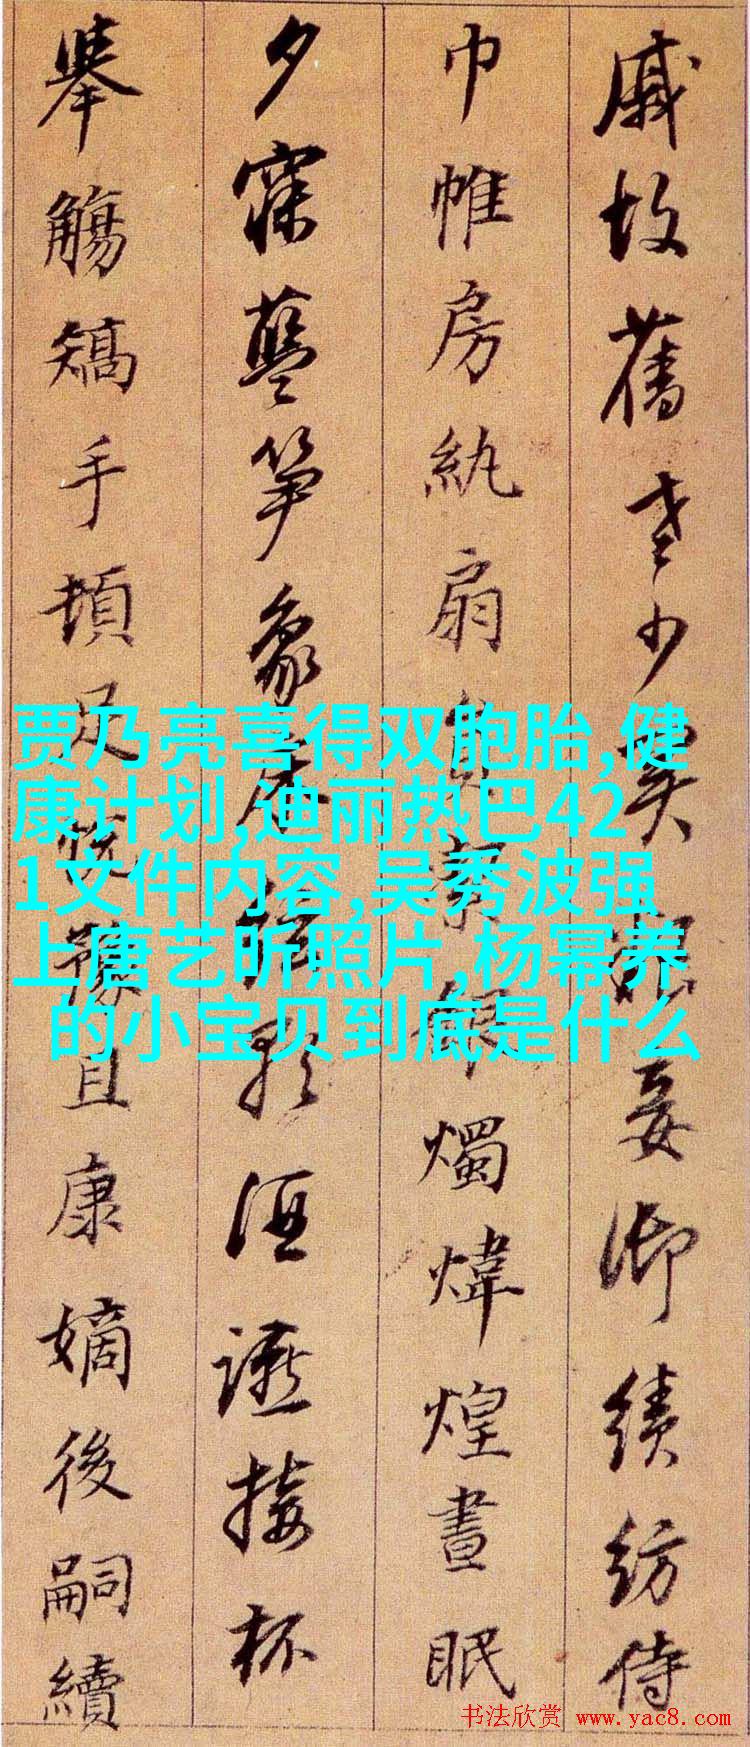 戚故舊老少異糧妾御績紡侍
巾帷房紈扇員銀燭煒煌晝眠
夕寐藍笋象床弦歌酒讌接杯
舉觴矯手頓足悅豫且康嫡後嗣續
贾乃亮喜得双胞胎,健
康计划,迪丽热巴42
1文件内容,吴秀波强
上唐艺昕照片,杨幂养
的小宝贝到底是什么
书法欣赏 www.yac8.com